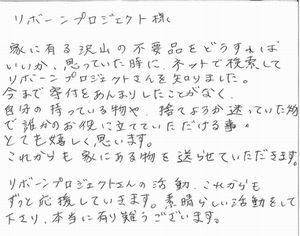 リボーンプロジェクト様
家に有る沢山の不要品をどうすれば
いいか、思っていた時に、ネットで検索して
リボーンプロジェクトさんを知りました。
今まで寄付をあんまりしたことがなく、
自分の持っている物や、捨てようか迷っていた物
で誰かのお役に立てていただける事
とても嬉しく思います。
これからも家にある物を送らせていただきます。
リボーンプロジェクトさんの活動、これからも
ずっと応援していきます。素晴らしい活動をして
下さり、本当に有り難うございます。